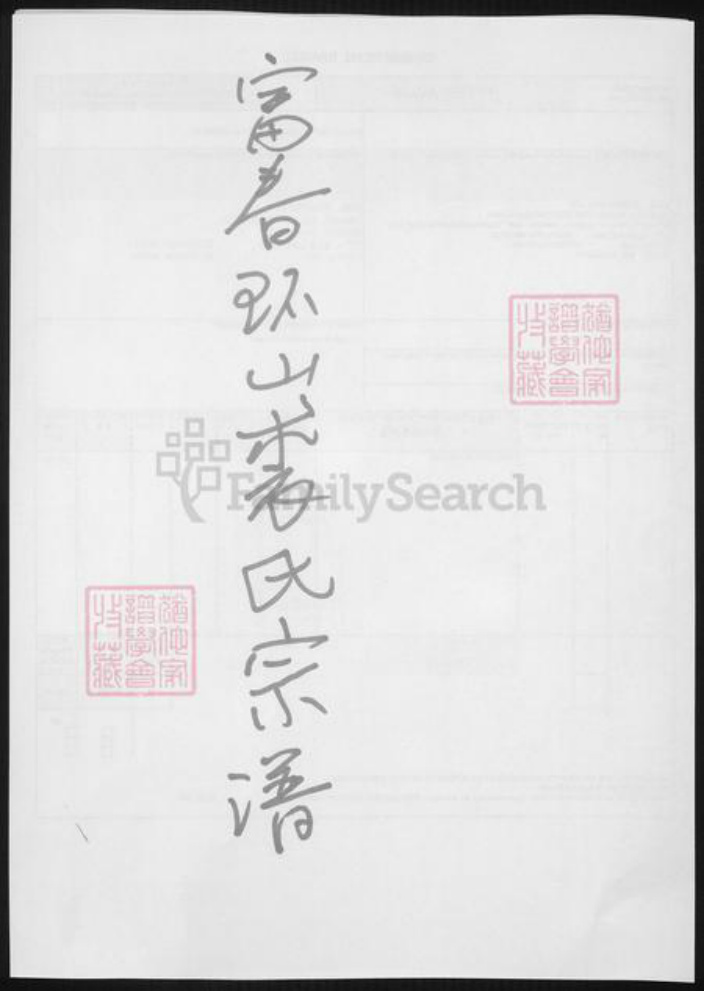 富春环山裘氏宗谱
猶他家
譜學會
收藏
FamilySearch
猶他家
譜學會
收藏